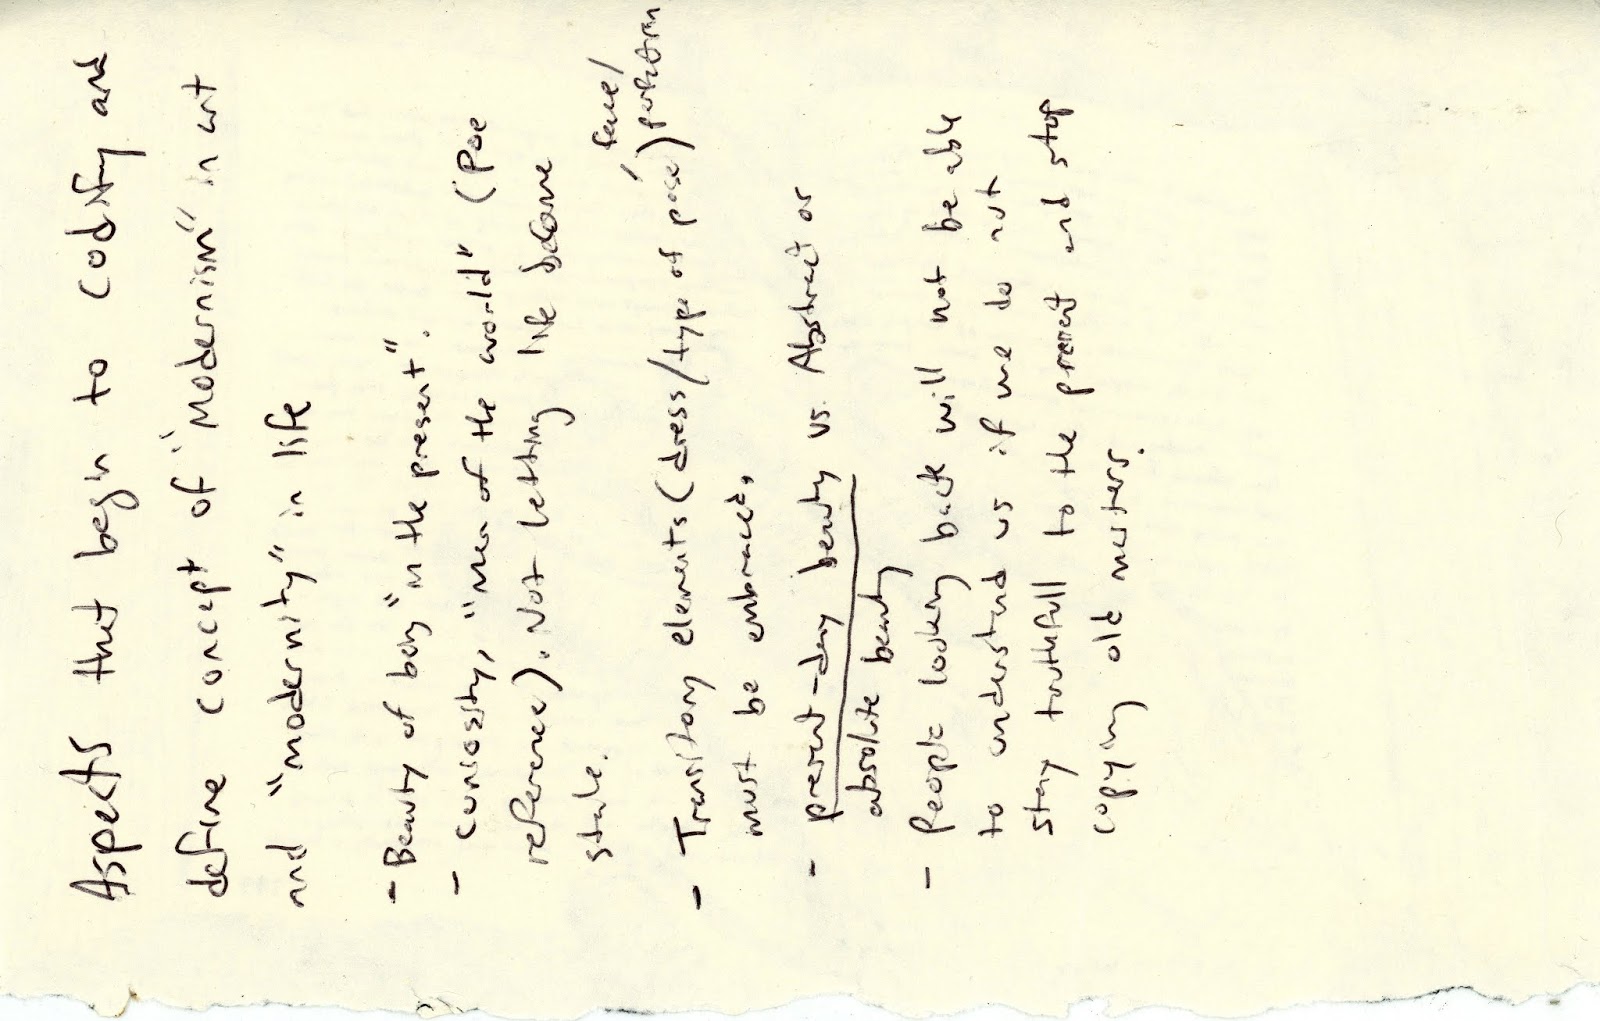 Aspects that begin to codify and
define concept of "Modernism" in art
and "modernity" in life
- Beauty of being "in the present".
- curiosity, "man of the world" (Poe
reference). Not letting life become
stale.
- Transitory elements (dress/type of pose)
must be embraced,
- present-day beauty vs. Abstract or
absolute beauty
- People looking back will not be able
to understand us if we do not
stay truthfull to the present and stop
copying old masters.